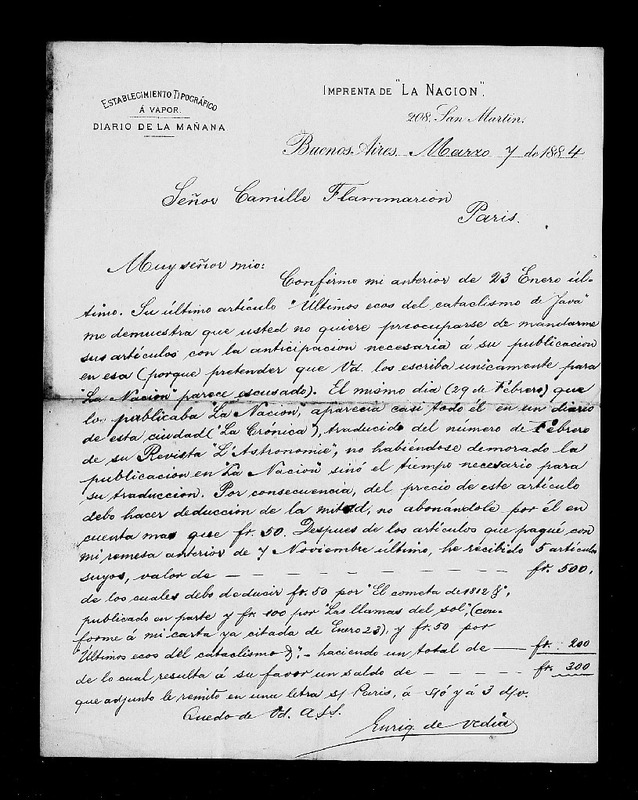 ESTABLECIMIENTO TIPOGRÁFICO
Á VAPOR.
DIARIO DE LA MAÑANA
IMPRENTA DE "LA NACION".
208. San Martin.
Buenos Aires Marzo 7 de 1884
Señor Camille Flammarion
Paris.
Muy señor mio:
Confirmo mi anterior de 23 Enero úl-
timo. Su último artículo "Últimos ecos del cataclismo de Java"
me demuestra que usted no quiere preocuparse de mandarme
sus artículos con la anticipacion necesaria á su publicacion
en esa (porque pretender que Vd. los escriba unicamente para
"La Nacion" parece escusado). El mismo dia (29 de Febrero) que
lo publicaba "La Nacion", aparecia casi todo él en un diario
de esta ciudad ("La Crónica"), traducido del número de Febrero
de su Revista "L'Astronomie", no habiéndose demorado la
publicacion en "La Nacion" sinó el tiempo necesario para
su traduccion. Por consecuencia, del precio de este artículo
debo hacer deduccion de la mitad, no abonándole por él en
cuenta mas que fr. 50. Despues de los artículos que pagué con
mi remesa anterior de 7 Noviembre último, he recibido 5 artículos
suyos, valor de — — — — — — — — fr. 500,
de los cuales debo deducir fr. 50 por "El cometa de 1812 &",
publicado en parte y fr. 100 por "Las llamas del sol", (con-
forme á mi carta ya citada de Enero 23), y fr. 50 por
"Últimos ecos del cataclismo &". – haciendo un total de — fr. 200
de lo cual resulta á su favor un saldo de — — — — fr. 300
que adjunto le remito en una letra s/ Paris, á 3 d/v.
Quedo de Vd. A.S.S.
Enriq. de Vedia